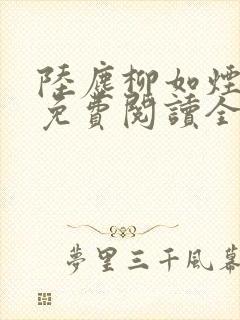 陸塵柳如煙
免費閱讀全
夢里三千風幕